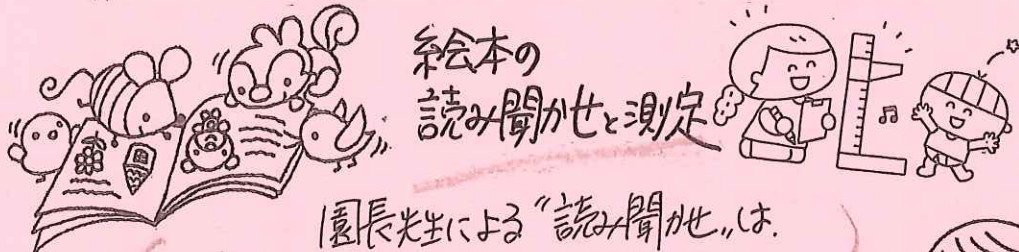 絵本の
読み聞かせと測定
園長先生による〝読み聞かせ〟は、